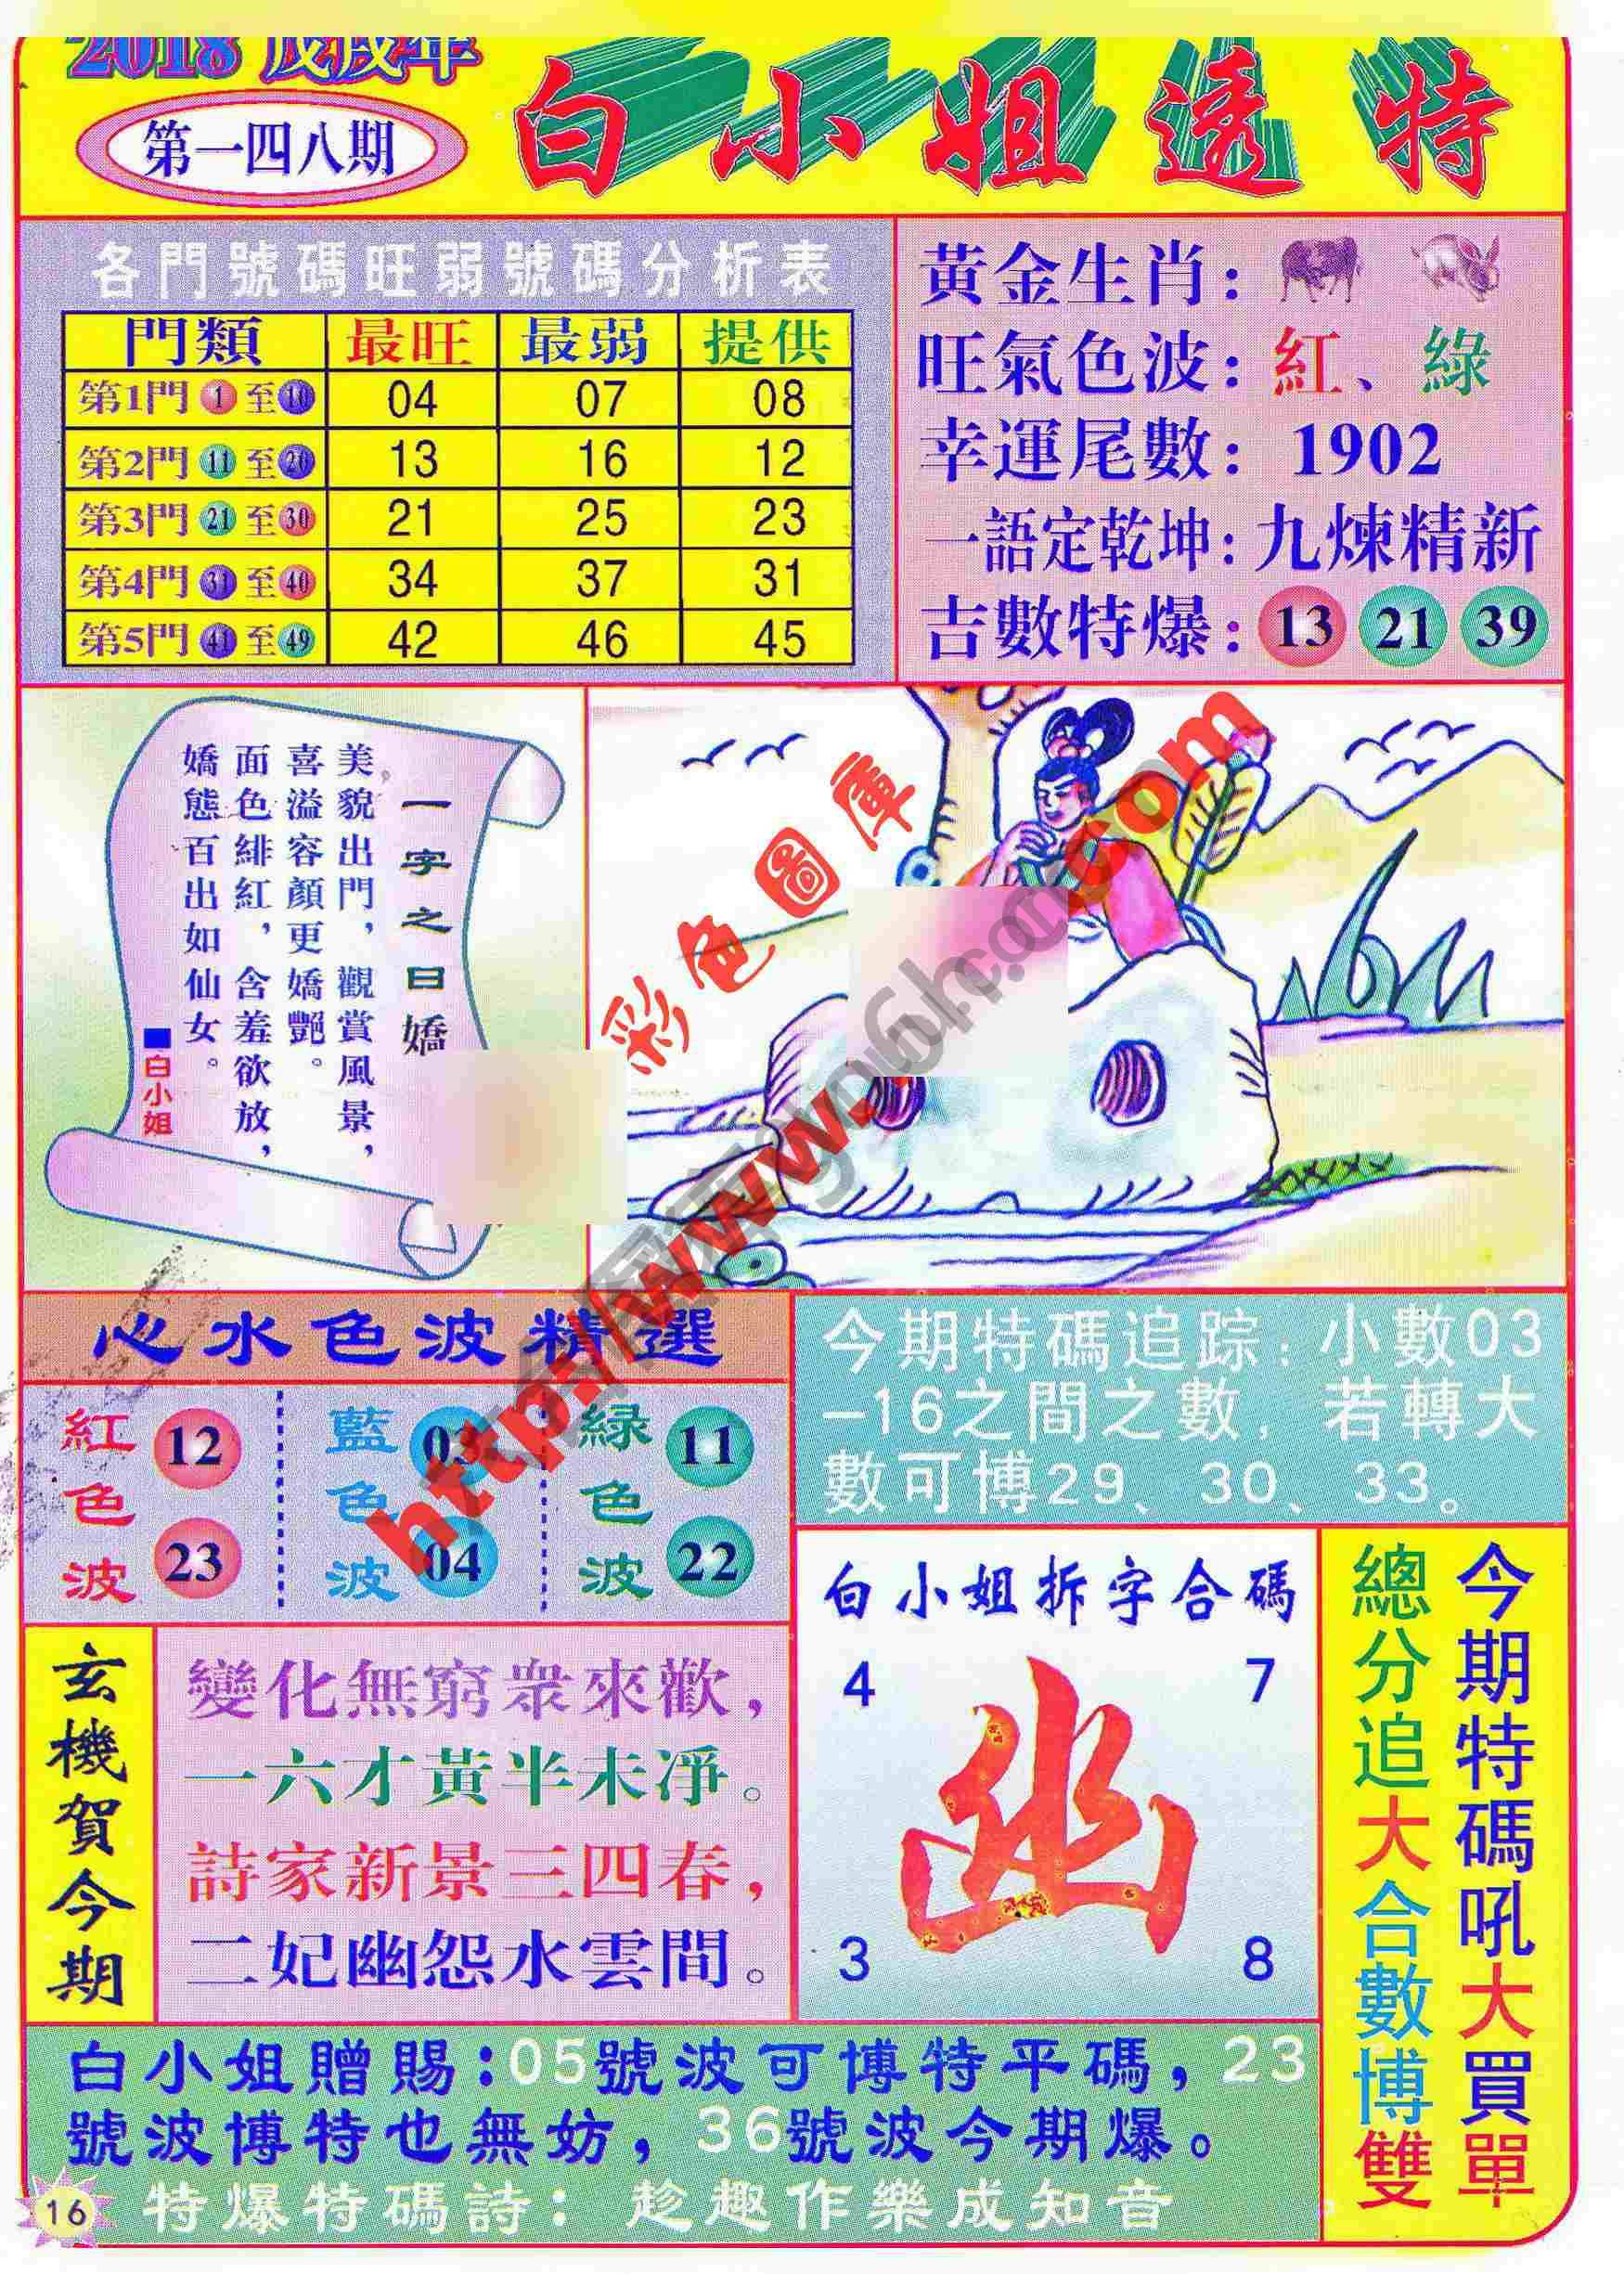 2018 戊戌年
第一四八期
白小姐透特
各門號碼旺弱號碼分析表
門類 最旺 最弱 提供
第1門 1 至 10 04 07 08
第2門 11 至 20 13 16 12
第3門 21 至 30 21 25 23
第4門 31 至 40 34 37 31
第5門 41 至 49 42 46 45
黃金生肖：
旺氣色波：紅、綠
幸運尾數：1902
一語定乾坤：九煉精新
吉數特爆：13 21 39
一字之曰嬌
美貌出門，觀賞風景，
喜溢容顏更嬌艷。
面色緋紅，含羞欲放，
嬌態百出如仙女。
■白小姐
彩色圖庫
心水色波精選
紅色波 12 23
藍色波 03 04
綠色波 11 22
今期特碼追踪：小數03
-16之間之數，若轉大
數可博29、30、33。
白小姐拆字合碼
4 7
幽
3 8
今期特碼吼大買單
總分追大合數博雙
玄機賀今期
變化無窮衆來歡，
一六才黃半未淨。
詩家新景三四春，
二妃幽怨水雲間。
白小姐贈賜：05號波可博特平碼，23
號波博特也無妨，36號波今期爆。
特爆特碼詩：趁趣作樂成知音
16